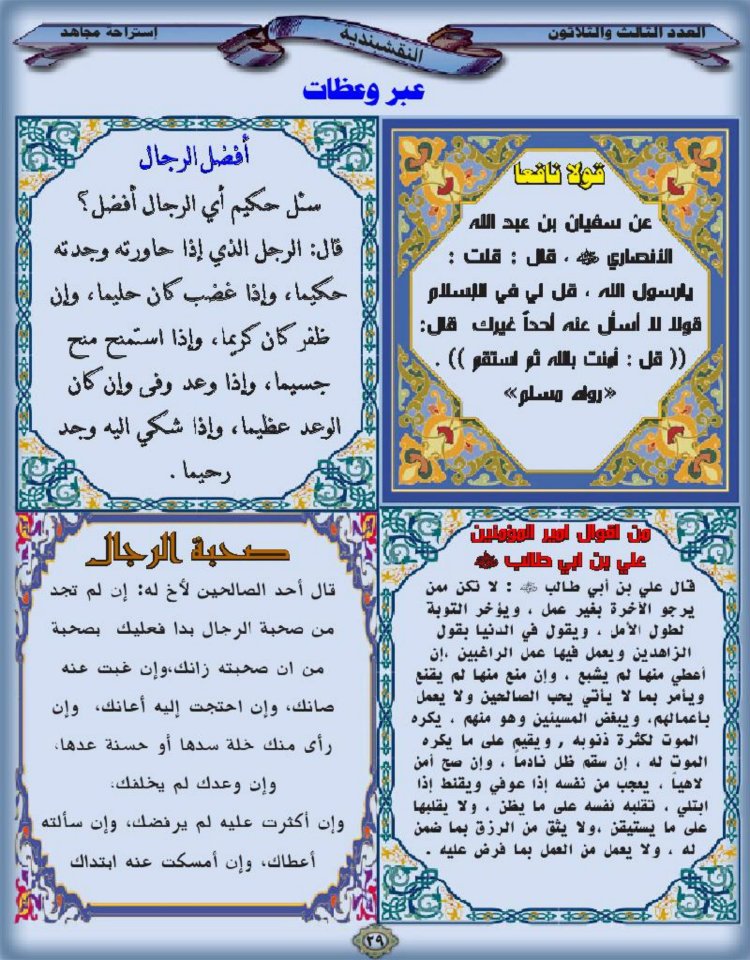 العدد الثالث والثلاثون
النقشبندية
إستراحة مجاهد
عبر وعظات
قولا نافعا
عن سفيان بن عبد الله
الأنصاري ﷺ ، قال : قلت :
يارسول الله ، قل لي في الإسلام
قولا لا أسأل عنه أحداً غيرك قال:
(( قل : آمنت بالله ثم استقم )) .
«رواه مسلم»
أفضل الرجال
سئل حكيم أي الرجال أفضل؟
قال: الرجل الذي إذا حاورته وجدته
حكيما، وإذا غضب كان حليما، وإن
ظفر كان كريما، وإذا استمنح منح
جسيما، وإذا وعد وفى وإن كان
الوعد عظيما، وإذا شكي اليه وجد
رحيما .
من اقوال امير المؤمنين
علي بن ابي طالب
قال علي بن أبي طالب : لا تكن ممن
يرجو الآخرة بغير عمل ، ويؤخر التوبة
لطول الأمل ، ويقول في الدنيا بقول
الزاهدين ويعمل فيها عمل الراغبين ،إن
أعطي منها لم يشبع ، وإن منع منها لم يقنع
ويأمر بما لا يأتي يحب الصالحين ولا يعمل
بأعمالهم، ويبغض المسيئين وهو منهم ، يكره
الموت لكثرة ذنوبه , ويقيم على ما يكره
الموت له ، إن سقم ظل نادماً ، وإن صح أمن
لاهياً ، يعجب من نفسه إذا عوفي ويقنط إذا
ابتلي ، تقلبه نفسه على ما يظن ، ولا يقلبها
على ما يستيقن ،ولا يثق من الرزق بما ضمن
له ، ولا يعمل من العمل بما فرض عليه .
صحبة الرجال
قال أحد الصالحين لأخ له: إن لم تجد
من صحبة الرجال بدا فعليك بصحبة
من ان صحبته زانك،وإن غبت عنه
صانك، وإن احتجت إليه أعانك، وإن
رأى منك خلة سدها أو حسنة عدها،
وإن وعدك لم يخلفك،
وإن أكثرت عليه لم يرفضك، وإن سألته
أعطاك، وإن أمسكت عنه ابتداك
٢٩